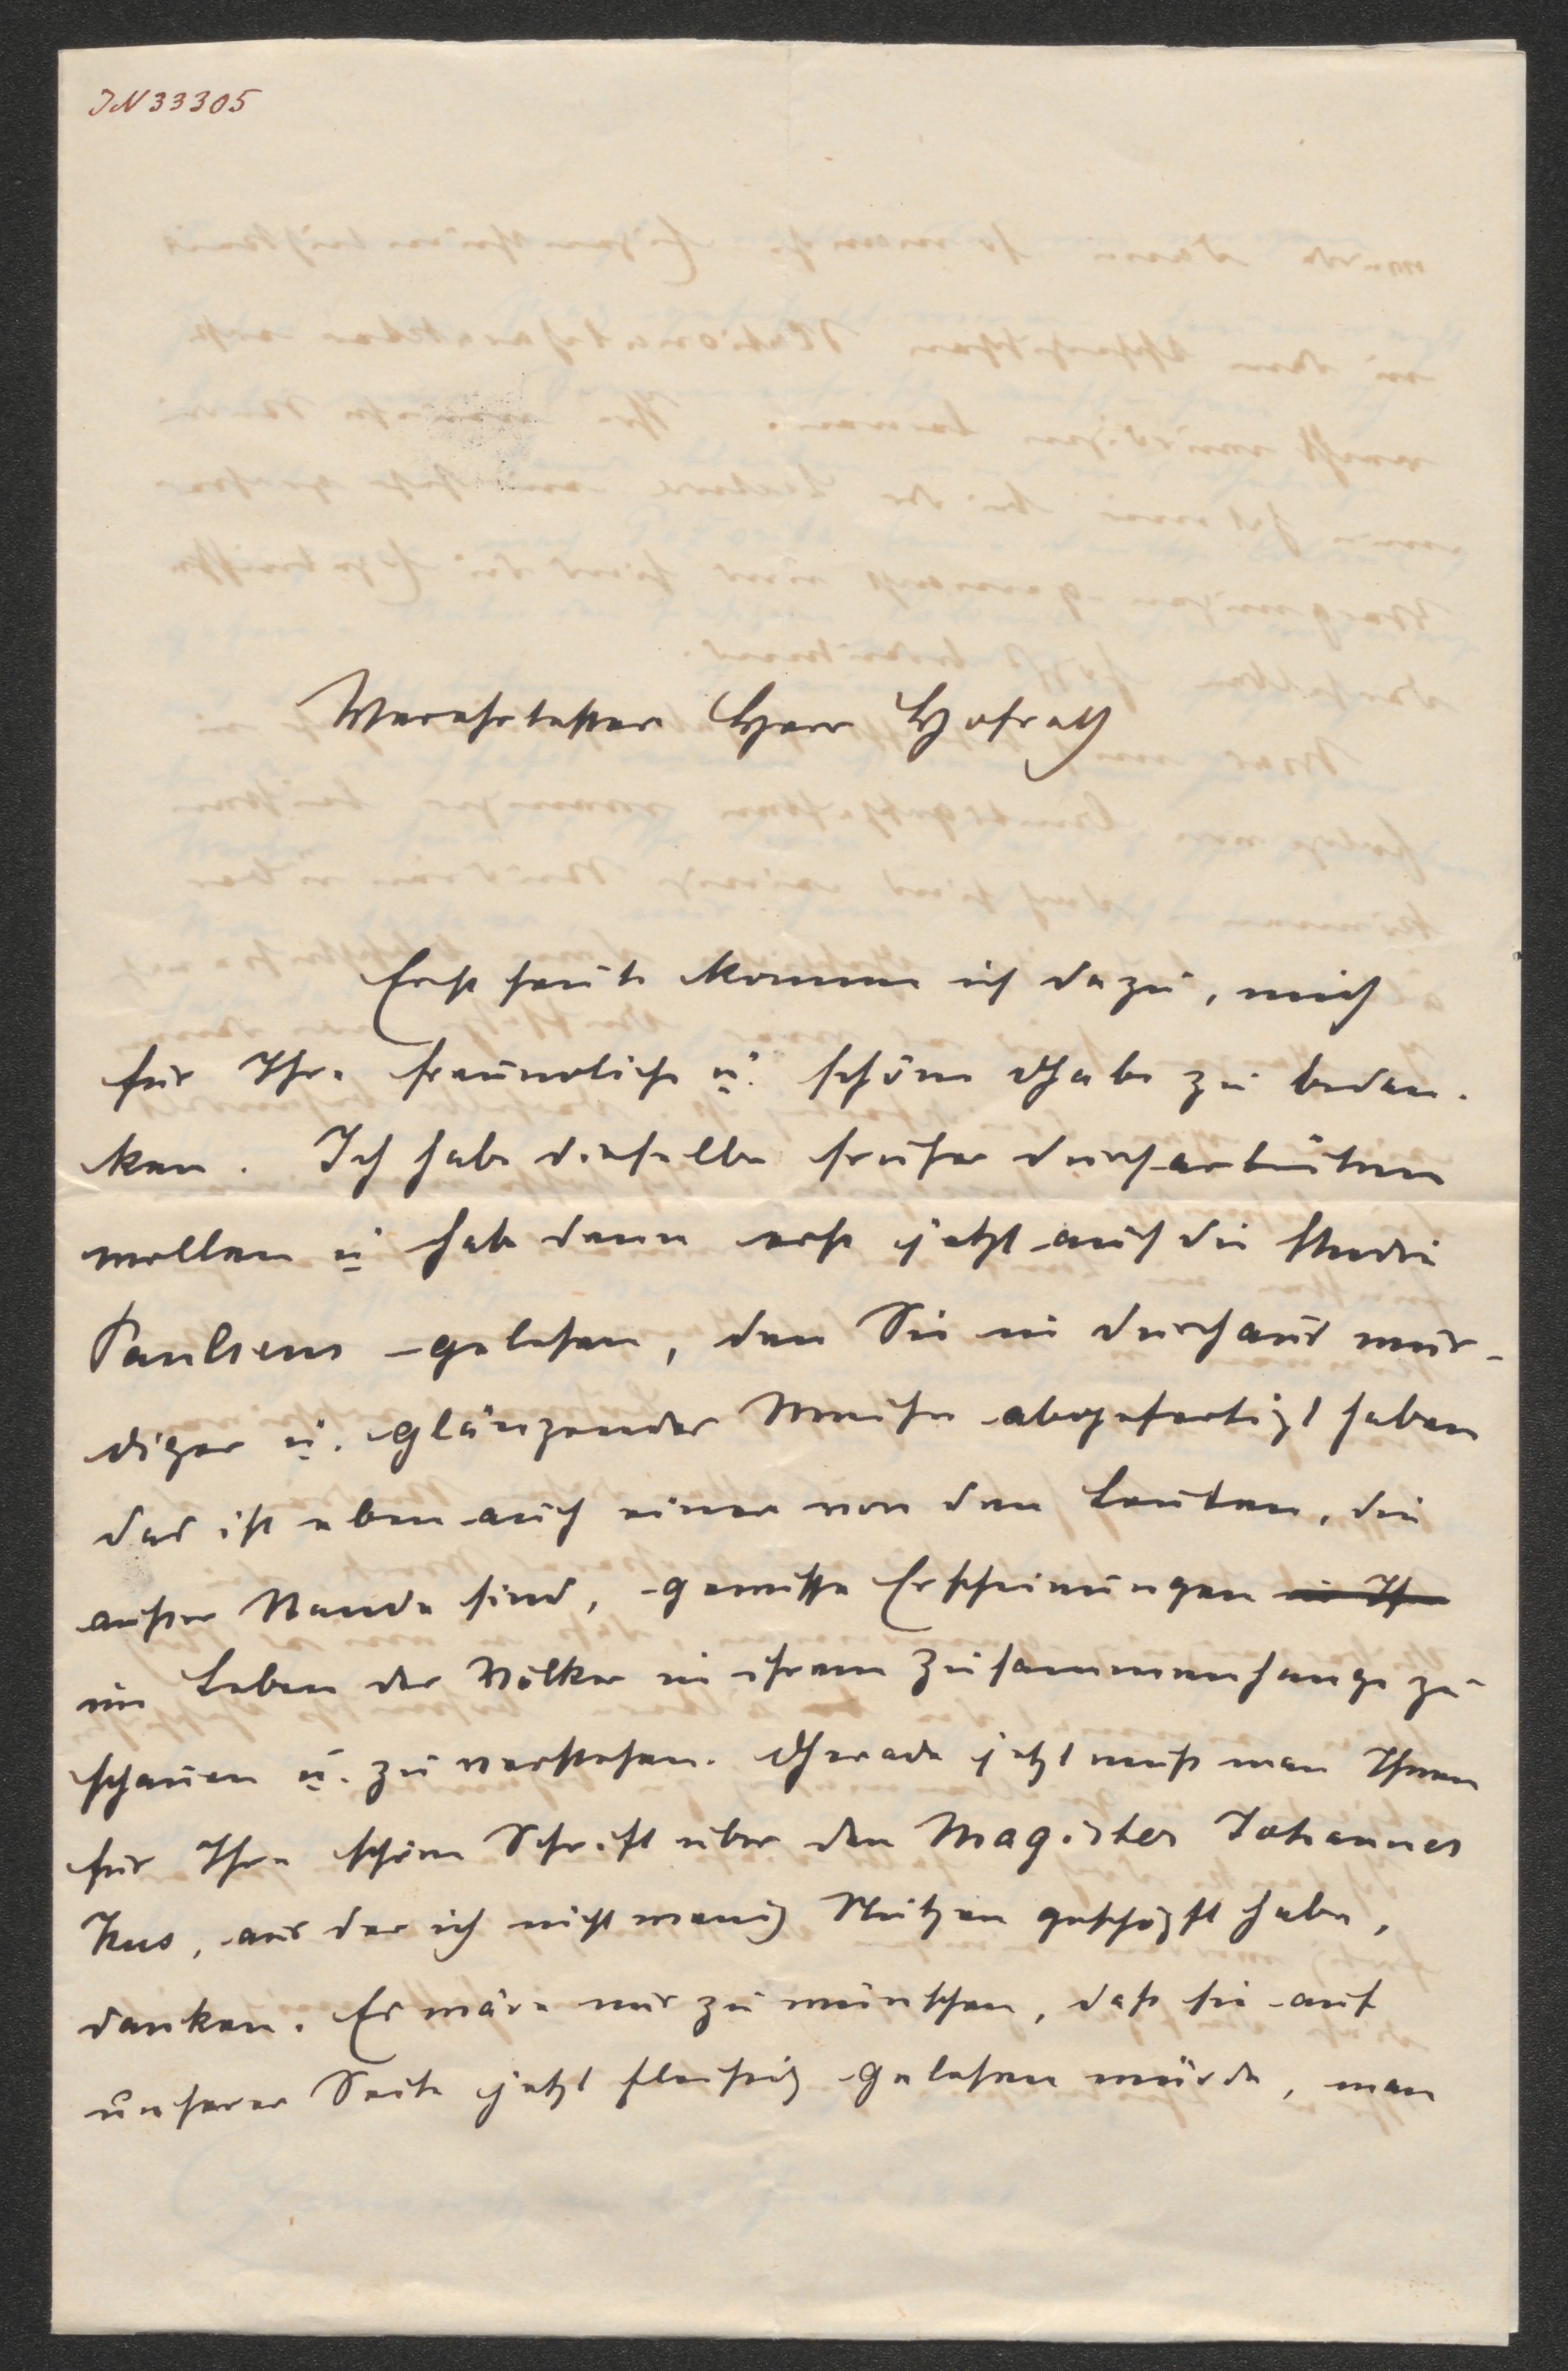 IN 33305
Verehrtester Herr Hofrath
Erst heute komme ich dazu, mich
für Ihre freundliche u. schöne Gabe zu bedan-
ken. Ich habe dieselbe früher durcharbeiten
wollen u habe denn erst jetzt auch die Studie
Paulsens gelesen, den Sie in durchaus wür-
diger u. glänzender Weise abgefertigt haben
das ist eben auch einer von den Leuten, die
außer Stande sind, gewisse Erscheinungen
im Leben der Völker in ihrem Zusammenhange zu
schauen u. zu verstehen. Gerade jetzt muß man Ihnen
für Ihre schöne Schrift über den Magister Johannes
Hus, aus der ich nicht wenig Nutzen geschöpft habe,
danken. Es wäre nur zu wünschen, daß sie auf
unserer Seite jetzt fleißig gelesen würde, man